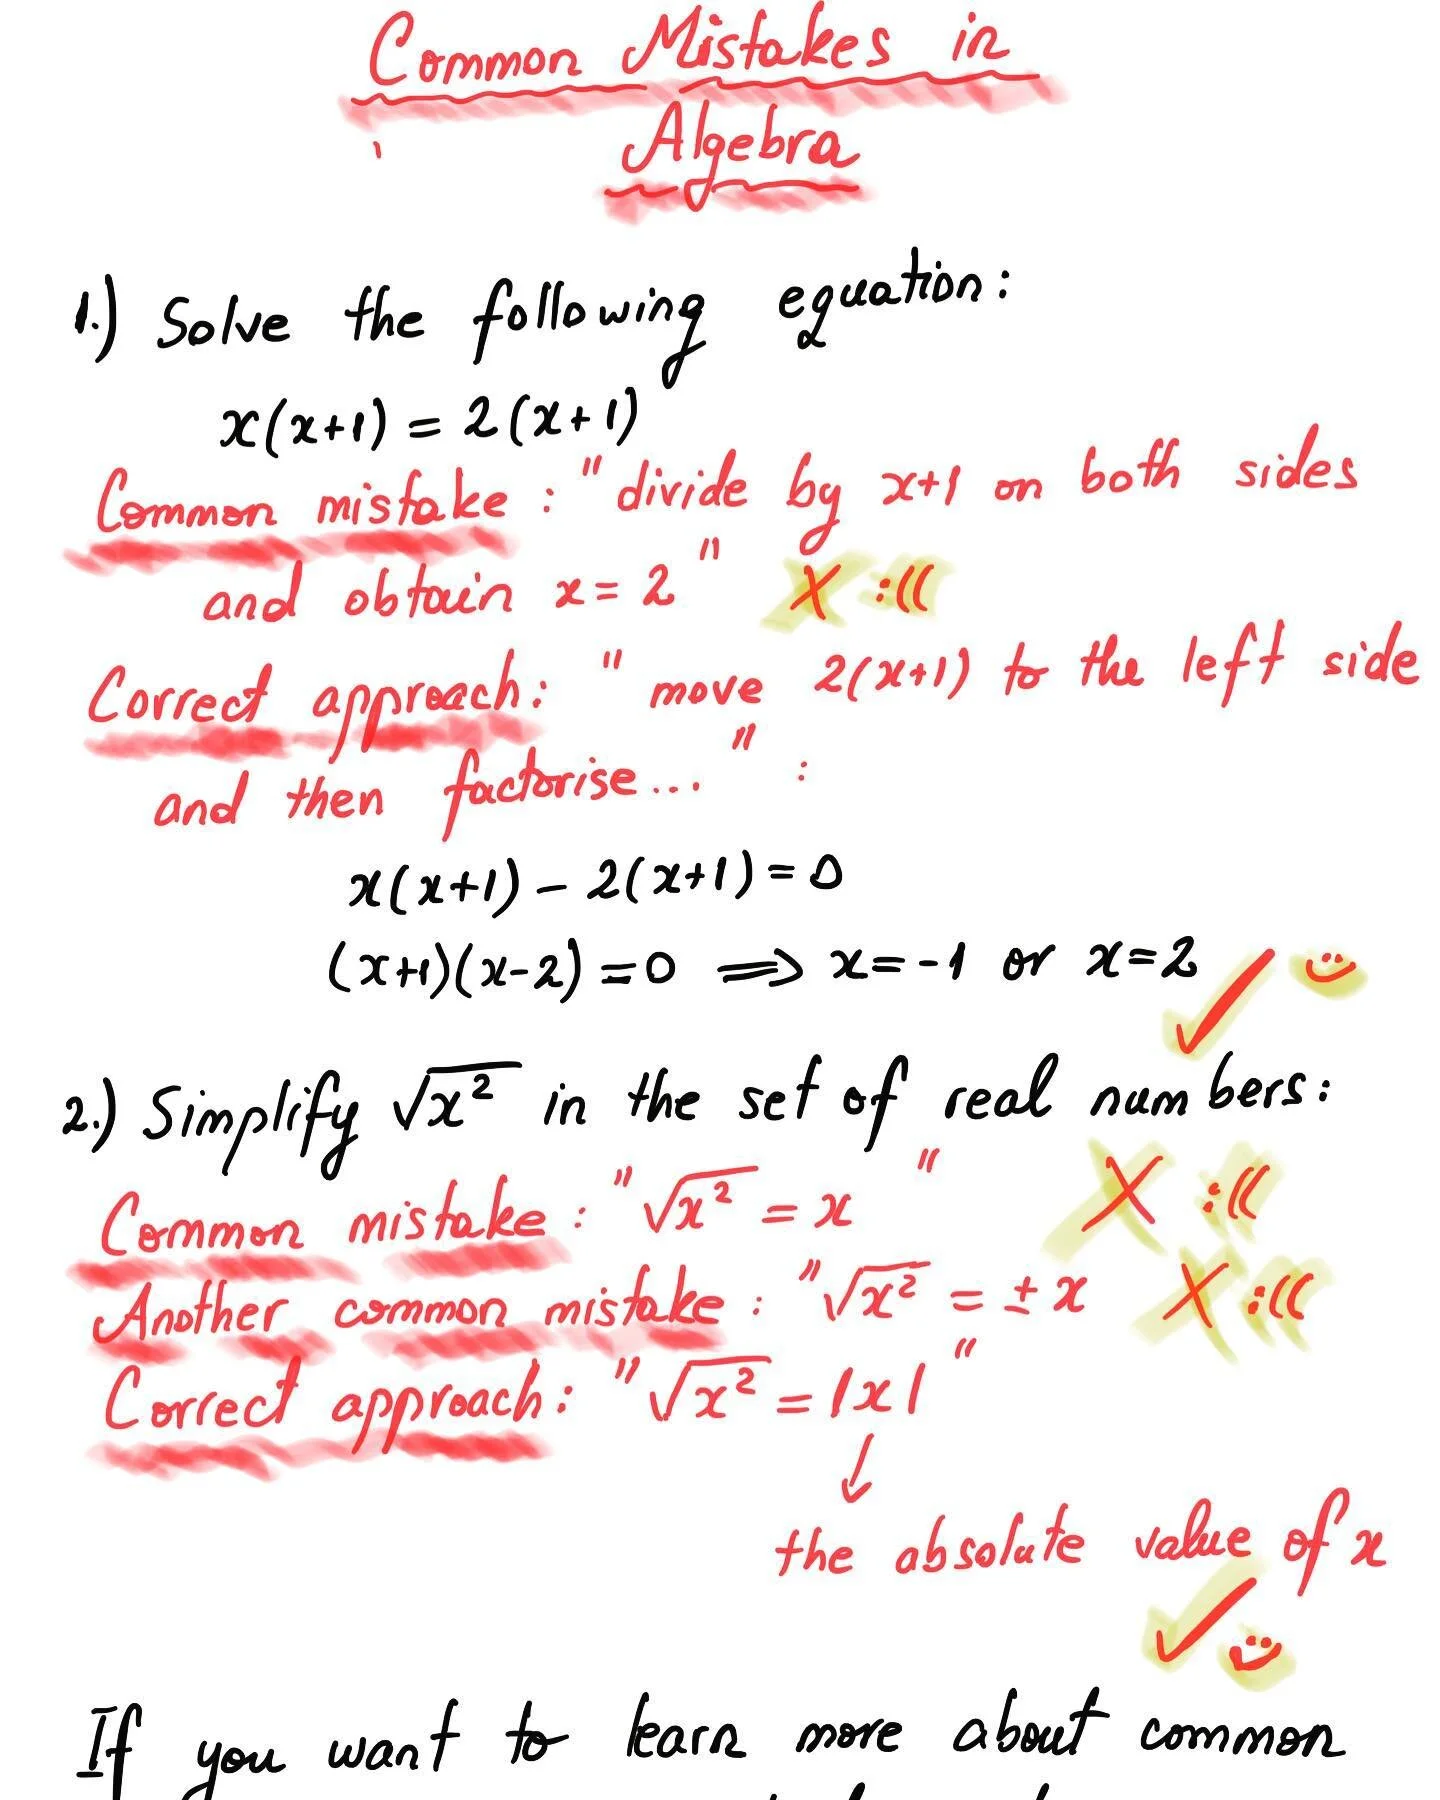 Common Mistakes in
Algebra
1.) Solve the following equation:
x(x+1) = 2(x+1)
Common mistake : "divide by x+1 on both sides
and obtain x = 2" X :((
Correct approach: "move 2(x+1) to the left side
and then factorise..." :
x(x+1) - 2(x+1) = 0
(x+1)(x-2) = 0 ⟹ x = -1 or x = 2 ✓
2.) Simplify √x² in the set of real numbers:
Common mistake : "√x² = x" X :((
Another common mistake : "√x² = ± x" X :((
Correct approach: "√x² = |x|"
↓
the absolute value of x
✓
If you want to learn more about common